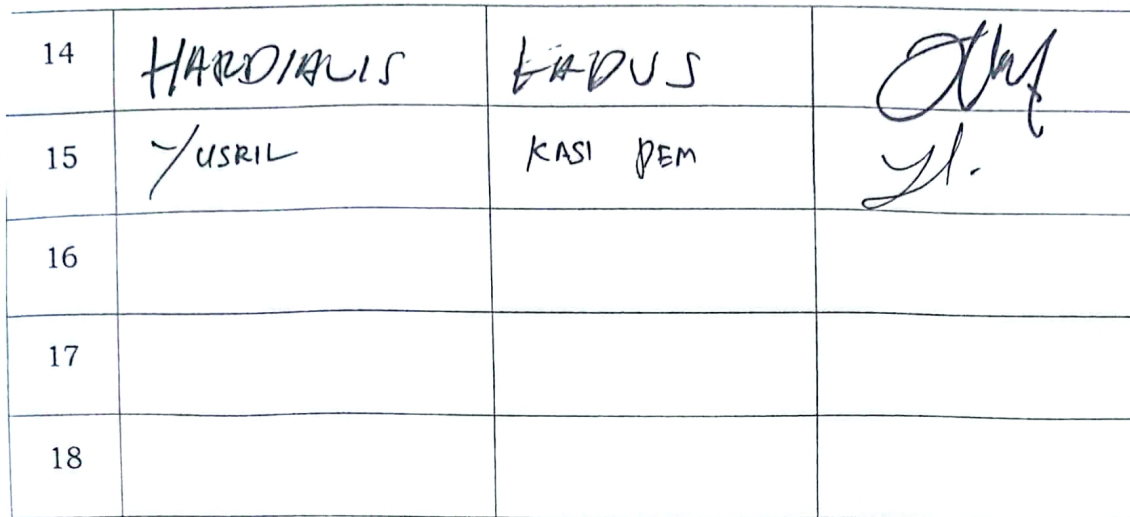 14 HARDIALIS KADUS
15 YUSRIL KASI PEM
16
17
18